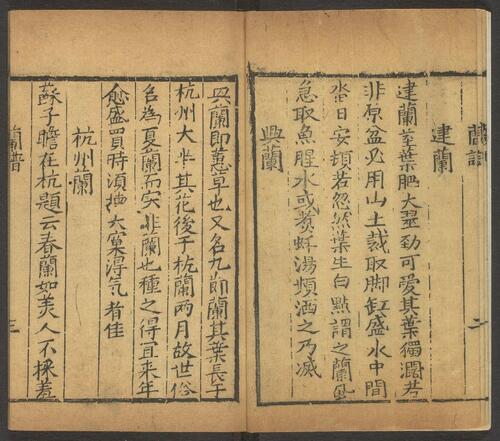 二
建蘭
建蘭莖葉肥大翠勁可愛其葉獨濶若
非原盆必用山土栽取脚缸盛水中間
日安頓若忽然葉生白點謂之蘭虱
急取魚腥水或煮蚌湯頻洒之乃滅
興蘭
興蘭即蕙草也又名九節蘭其葉長于
杭州大半其花後于杭蘭兩月故世俗
名為夏蘭而实非蘭也種之得宜来年
愈盛買時須揀大窠得气者佳
杭州蘭
蘇子瞻在杭題云春蘭如美人不採羞
蘭譜 三